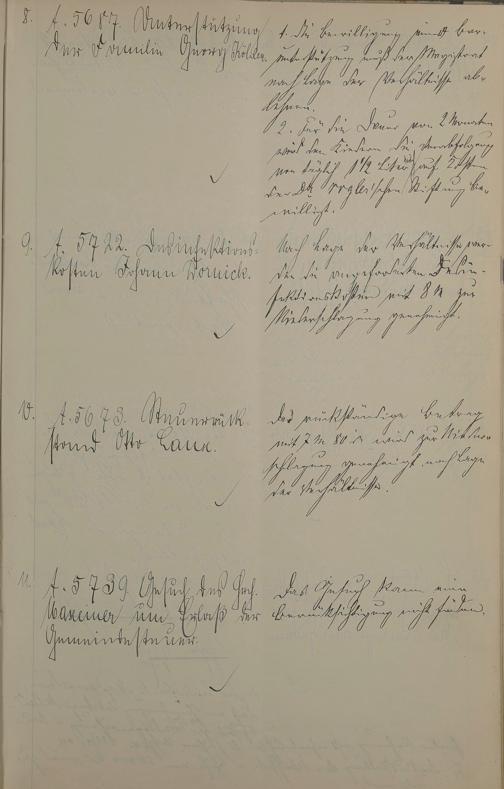 8. A. 5617. Unterstützung
der Familie Georg
1. die Bewilligung einer Bar-
unterstützung muß der Magistrat
nach Lage der Verhältnisse ab-
lehnen.
2. Für die Dauer von 2 Monaten
wird den Kindern die Verabfolgung
von täglich 1 1/2 Liter auf Kosten
der Dr. Stiftung be-
willigt.
9. A. 5722. Desinfektions-
kosten Johann Wornick.
Nach Lage der Verhältnisse wer-
den die angeforderten Desin-
fektionskosten mit 8 M zur
Niederschlagung genehmigt.
10. A. 5673. Steuerrück-
stand Otto Laux.
Der rückständige Betrag
mit 7 M 80 wird zur Nieder-
schlagung genehmigt nach Lage
der Verhältnisse.
11. A. 5739. Gesuch des
um Erlaß der
Gemeindesteuer.
Das Gesuch kann eine
Berücksichtigung nicht finden.